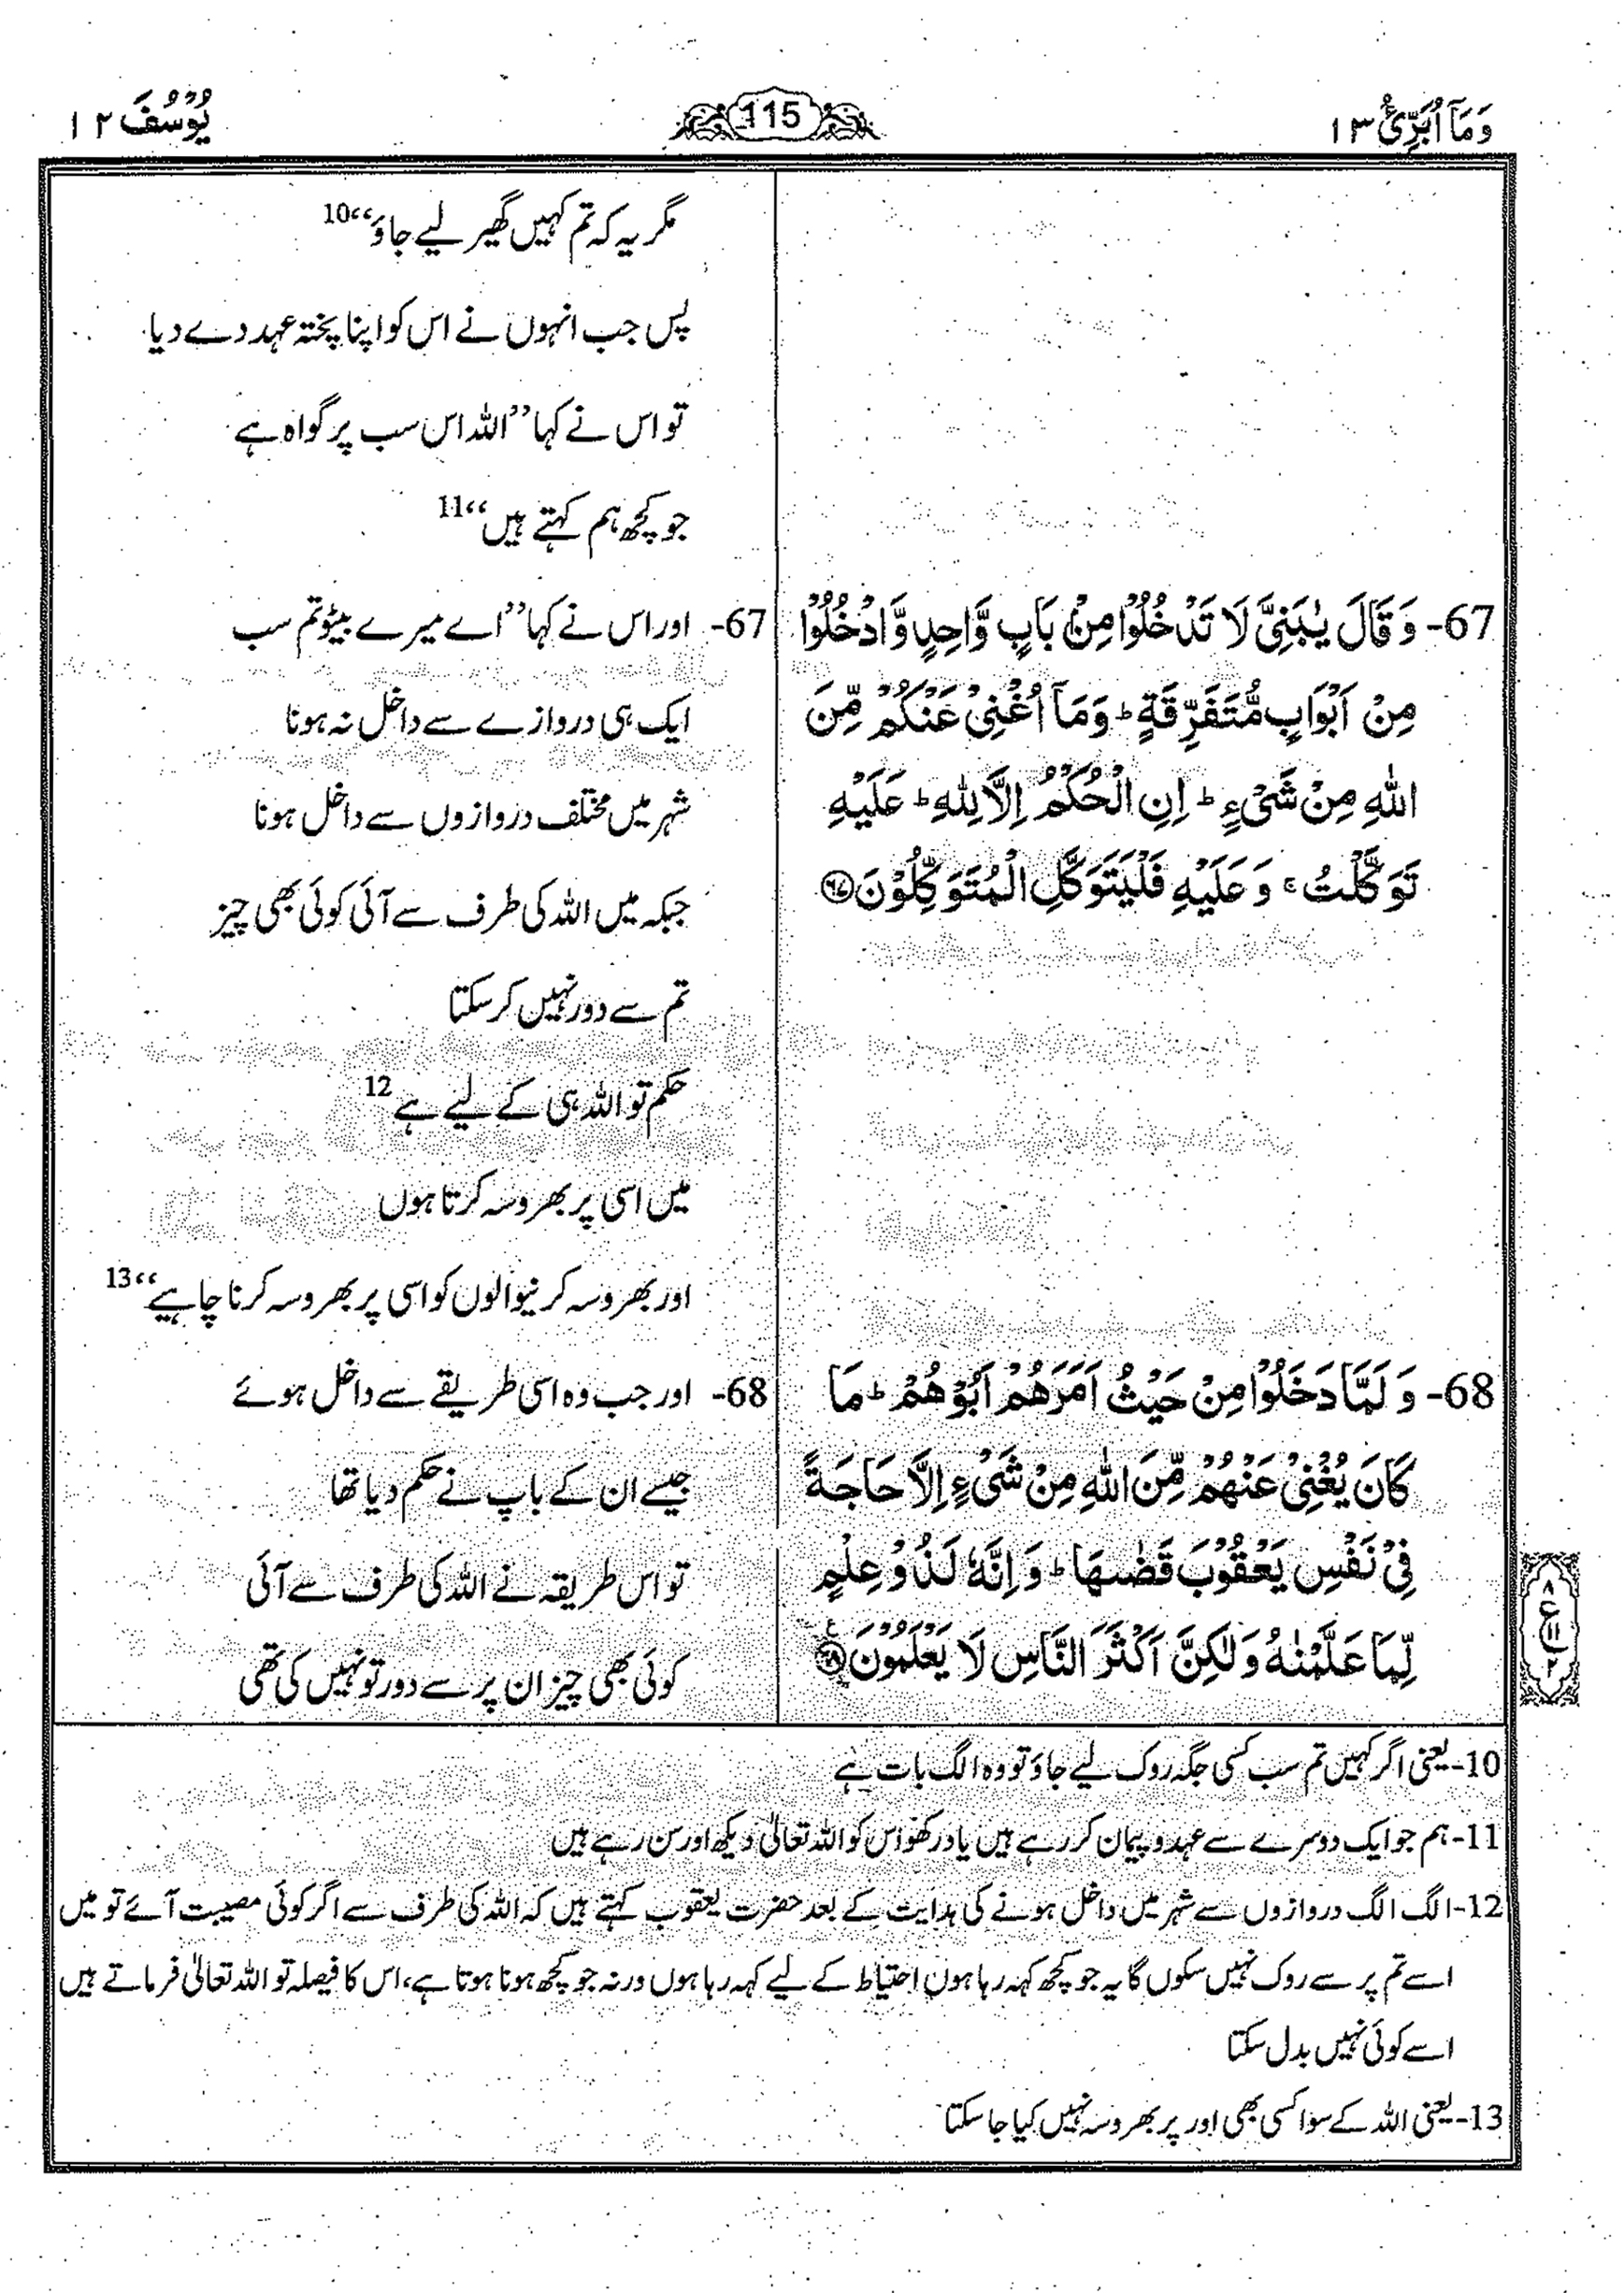 وَمَآ اُبَرِّئُ ۱۳
115
يُوْسُفَ ۱۲
مگر یہ کہ تم کہیں گھیر لیے جاؤ‘‘10
پس جب انہوں نے اس کو اپنا پختہ عہد دے دیا
تو اس نے کہا ’’اللہ اس سب پر گواہ ہے
جو کچھ ہم کہتے ہیں‘‘11
67- وَ قَالَ يٰبَنِيَّ لَا تَدْخُلُوْا مِنْۢ بَابٍ وَّاحِدٍ وَّادْخُلُوْا
مِنْ اَبْوَابٍ مُّتَفَرِّقَةٍ ؕ وَمَآ اُغْنِيْ عَنْكُمْ مِّنَ
اللّٰهِ مِنْ شَيْءٍ ؕ اِنِ الْحُكْمُ اِلَّا لِلّٰهِ ؕ عَلَيْهِ
تَوَكَّلْتُ ۚ وَ عَلَيْهِ فَلْيَتَوَكَّلِ الْمُتَوَكِّلُوْنَ ۝۶۷
67- اور اس نے کہا ’’اے میرے بیٹو تم سب
ایک ہی دروازے سے داخل نہ ہونا
شہر میں مختلف دروازوں سے داخل ہونا
جبکہ میں اللہ کی طرف سے آئی کوئی بھی چیز
تم سے دور نہیں کر سکتا
حکم تو اللہ ہی کے لیے ہے12
میں اسی پر بھروسہ کرتا ہوں
اور بھروسہ کرنیوالوں کو اسی پر بھروسہ کرنا چاہیے‘‘13
68- وَ لَمَّا دَخَلُوْا مِنْ حَيْثُ اَمَرَهُمْ اَبُوْهُمْ ؕ مَا
كَانَ يُغْنِيْ عَنْهُمْ مِّنَ اللّٰهِ مِنْ شَيْءٍ اِلَّا حَاجَةً
فِيْ نَفْسِ يَعْقُوْبَ قَضٰىهَا ؕ وَ اِنَّهٗ لَذُوْ عِلْمٍ
لِّمَا عَلَّمْنٰهُ وَلٰكِنَّ اَكْثَرَ النَّاسِ لَا يَعْلَمُوْنَ ۝۶۸
68- اور جب وہ اسی طریقے سے داخل ہوئے
جیسے ان کے باپ نے حکم دیا تھا
تو اس طریقہ نے اللہ کی طرف سے آئی
کوئی بھی چیز ان پر سے دور تو نہیں کی تھی
۸
ع
۱۱
۲
10- یعنی اگر کہیں تم سب کسی جگہ روک لیے جاؤ تو وہ الگ بات ہے
11- ہم جو ایک دوسرے سے عہد و پیمان کر رہے ہیں یاد رکھو اس کو اللہ تعالیٰ دیکھ اور سن رہے ہیں
12- الگ الگ دروازوں سے شہر میں داخل ہونے کی ہدایت کے بعد حضرت یعقوب کہتے ہیں کہ اللہ کی طرف سے اگر کوئی مصیبت آئے تو میں
اسے تم پر سے روک نہیں سکوں گا یہ جو کچھ کہہ رہا ہوں احتیاط کے لیے کہہ رہا ہوں ورنہ جو کچھ ہونا ہوتا ہے، اس کا فیصلہ تو اللہ تعالیٰ فرماتے ہیں
اسے کوئی نہیں بدل سکتا
13- یعنی اللہ کے سوا کسی بھی اور پر بھروسہ نہیں کیا جا سکتا